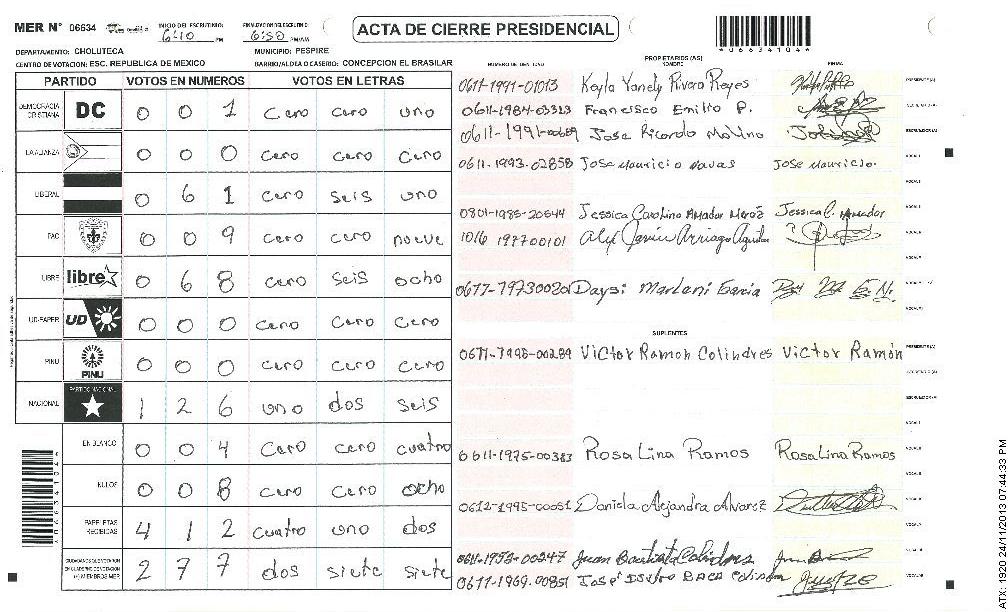 MER N° 06634 INICIO DEL ESCRUTINIO: 6:10 PM FINALIZACION DEL ESCRUTINIO: 6:50 PM/AM
ACTA DE CIERRE PRESIDENCIAL
*06634104*
DEPARTAMENTO: CHOLUTECA MUNICIPIO: PESPIRE
CENTRO DE VOTACION: ESC. REPUBLICA DE MEXICO BARRIO/ALDEA O CASERIO: CONCEPCION EL BRASILAR
PARTIDO VOTOS EN NUMEROS VOTOS EN LETRAS
DEMOCRACIA CRISTIANA DC 0 0 1 Cero cero uno
LA ALIANZA 0 0 0 cero cero cero
LIBERAL 0 6 1 cero seis uno
PAC 0 0 9 cero cero nueve
LIBRE libre 0 6 8 cero seis ocho
UD-FAPER UD 0 0 0 cero cero cero
PINU PINU 0 0 0 cero cero cero
NACIONAL PARTIDO NACIONAL 1 2 6 uno dos seis
EN BLANCO 0 0 4 cero cero cuatro
NULOS 0 0 8 cero cero ocho
PAPELETAS RECIBIDAS 4 1 2 cuatro uno dos
CIUDADANOS QUE VOTARON EN CUADERNO DE VOTACION (+) MIEMBROS MER 2 7 7 dos siete siete
NUMERO DE IDENTIDAD PROPIETARIOS (AS) NOMBRE FIRMA
0611-1991-01013 Keyla Yanely Rivera Reyes PRESIDENTE(A)
0611-1984-03313 Francisco Emilio P. SECRETARIO(A)
0611-1991-00689 Jose Ricardo Molino ESCRUTADOR(A)
0611-1993-02858 Jose Mauricio Navas Jose Mauricio. VOCAL I
0801-1985-20544 Jessica Carolina Amador Jessica C. Amador
1016 1977 00101 Alex Javier Arriaga Aguilar
0611-79730020 Daysi Marleni Garcia
SUPLENTES
0611-7995-00289 Victor Ramon Colindres Victor Ramón PRESIDENTE(A)
SECRETARIO(A)
ESCRUTADOR(A)
0611-1975-00383 Rosa Lina Ramos Rosa Lina Ramos
0612-1995-00051 Daniela Alejandra Alvarez
0611-1952-00247 Juan Bautista Colindres
0611-1969-00851 José Isidro BACA Colindres
ATX: 1920 24/11/2013 07:44:33 PM